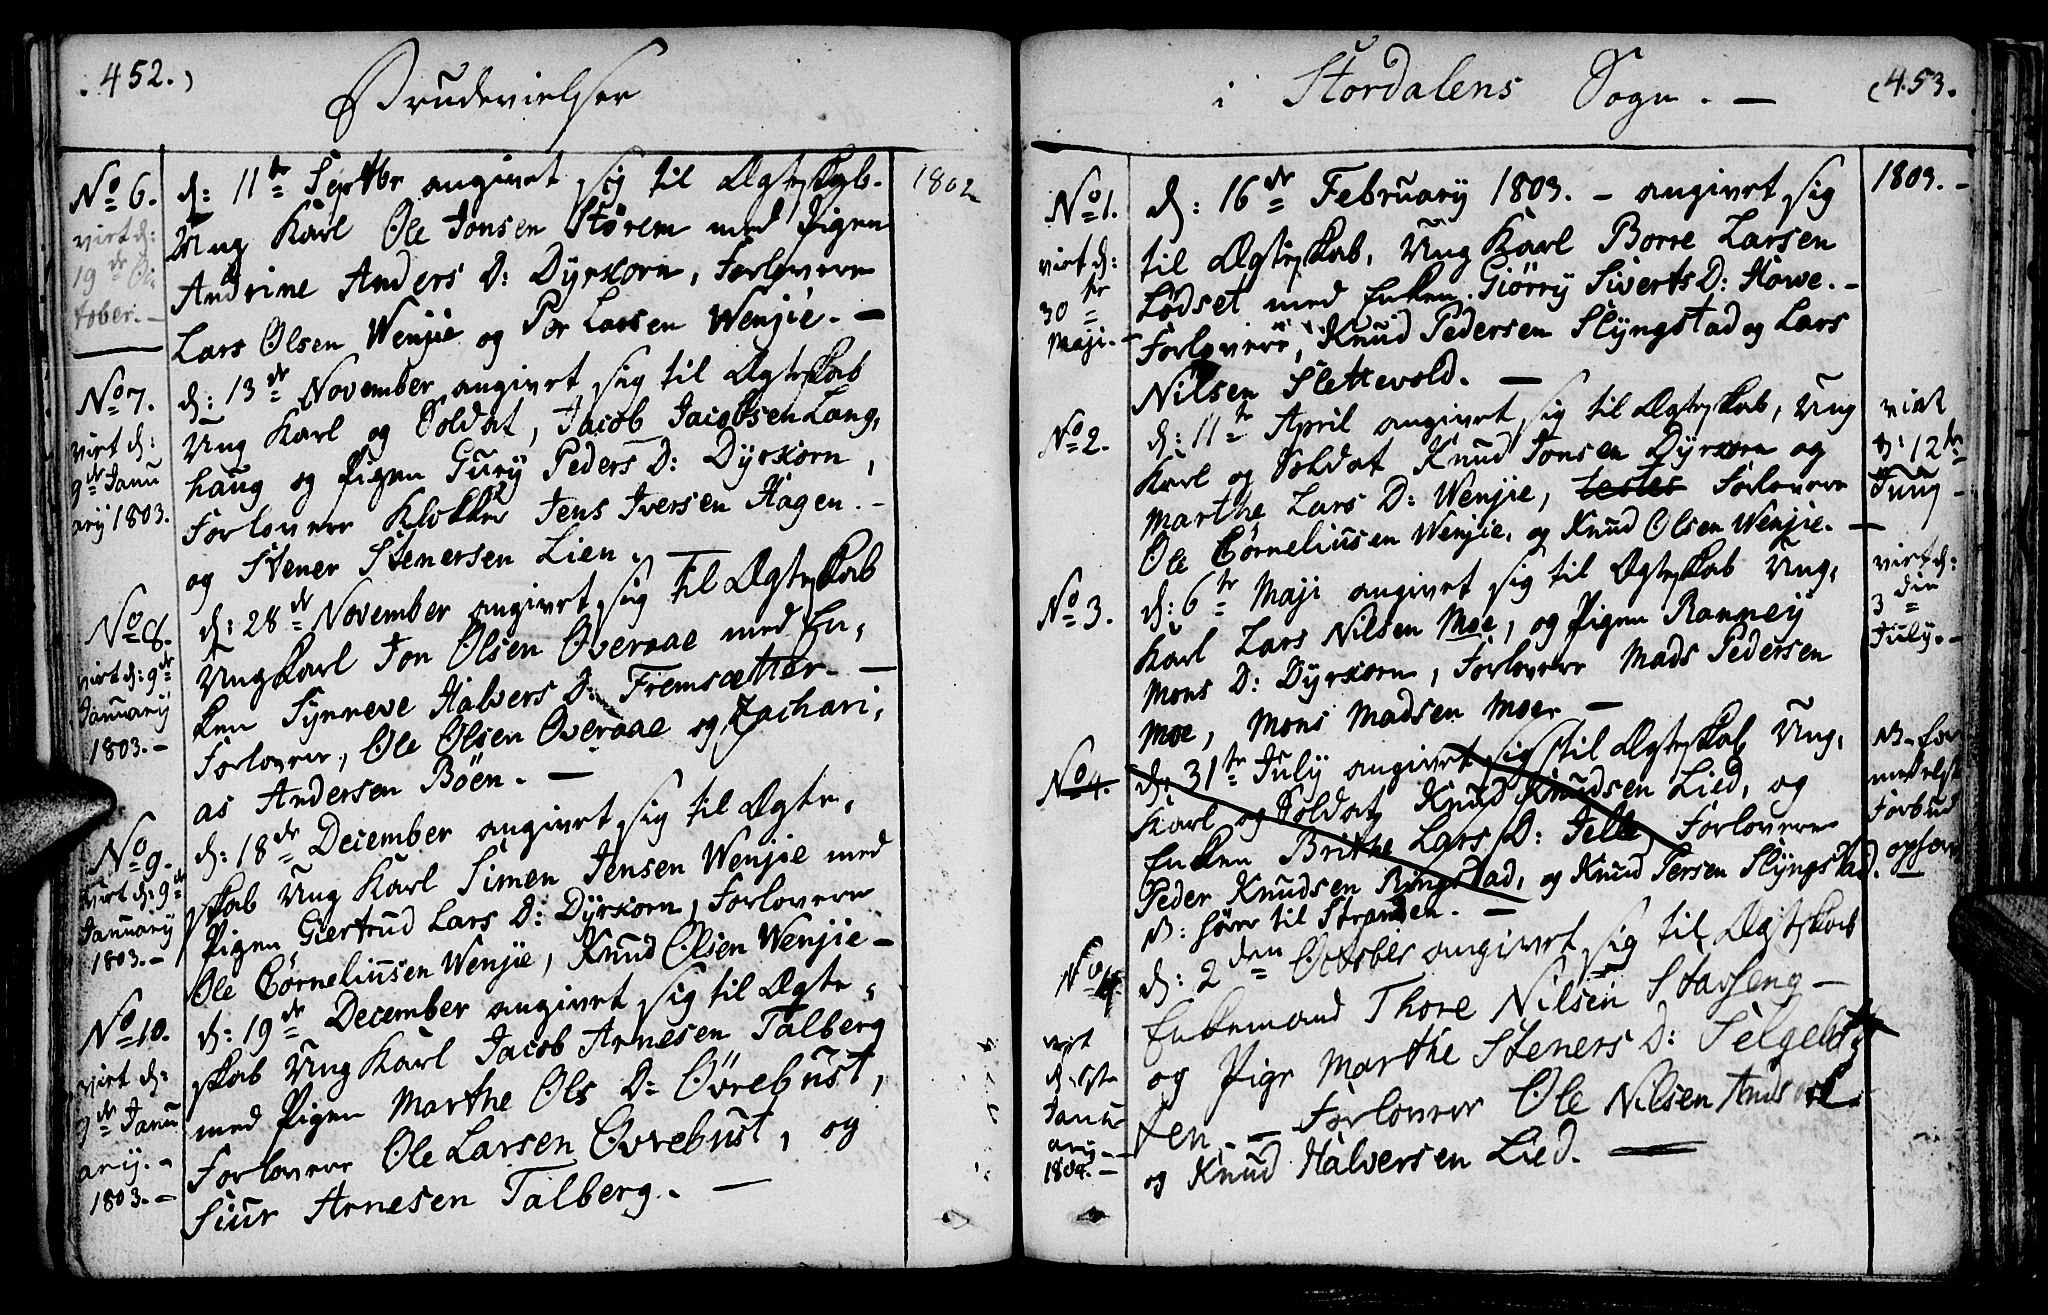 452.)
Brudevielser
1802
No 6.
virt d:
19de Oc
tober. -
d: 11te Septbr angivet sig til Ægteskab.
Ung Karl Ole Jonsen Storem med Pigen
Andrine Anders D: Dyrkorn, Forlovere
Lars Olsen Wenjie og Per Larsen Wenjie. -
No 7.
virt d:
9de Janu
ary 1803.
d: 13de November angivet sig til Ægteskab
Ung Karl og Soldat, Jacob Jacobsen Lang,
haug og Pigen Gury Peders D: Dyrkorn,
Forlovere Klokker Jens Iversen Hagen. -
og Stener Stenersen Lien. -
No 8.
virt d: 9de
January
1803. -
d: 28de November angivet sig til Ægteskab
Ung Karl Jon Olsen Overaae med En,
ken Synneve Halvers D: Fremsætter. -
Forlovere, Ole Olsen Overaae og Zachari,
as Andersen Böen. -
No 9.
virt d: 9de
January
1803. -
d: 18de December angivet sig til Ægte,
skab Ung Karl Simen Jensen Wenjie med
Pigen Giertrud Lars D: Dyrkorn, Forlovere
Ole Cørneliusen Wenjie, Knud Olsen Wenjie -
No 10.
virt d:
9de Janu
ary. -
1803. -
d: 19de December angivet sig til Ægte,
skab Ung Karl Jacob Arnesen Talberg
med Pigen Marthe Ols D: Øvrebust,
Forlovere Ole Larsen Øvrebust, og
Siur Arnesen Talberg. -
i Stordalens Sogn. -
(453.
1803. -
No 1.
virt d:
30te
Maji. -
d: 16de February 1803. - angivet sig
til Ægteskab, Ung Karl Borre Larsen
Lødset med Enken Giørry Siverts D: Howe. -
Forlovere, Knud Pedersen Slyngstad og Lars
Nilsen Slettevold. -
No 2.
d: 11te April angivet sig til Ægteskab, Ung
Karl og Soldat Knud Jonsen Dyrkorn og
Marthe Lars D: Wenjie, testes Forlovere
Ole Cørneliusen Wenjie, og Knud Olsen Wenjie. -
virt
d: 12te
Juny -
No 3.
d: 6te Maji angivet sig til Ægteskab Ung,
Karl Lars Nilsen Moe, og Pigen Ranney
Mons D: Dyrkorn, Forlovere Mads Pedersen
Moe, Mons Madsen Moe. -
virt d:
3die
July. -
No 4.
d: 31te July angivet sig til Ægteskab Ung,
Karl og Soldat Knud Knudsen Lied, og
Enken Brithe Lars D: Jelle, Forlovere
Peder Knudsen Ringstad, og Knud Persen Slyngstad.
N: hører til Stranden. -
Forbud
No 4.
virt
d: 1ste
Janu
ary -
1804. -
d: 2den October angivet sig til Ægteskab
Enkemand Thore Nilsen Stavseng -
og Pige Marthe Steners D:
Forlovere Ole Nilsen
og Knud Halversen Lied. -